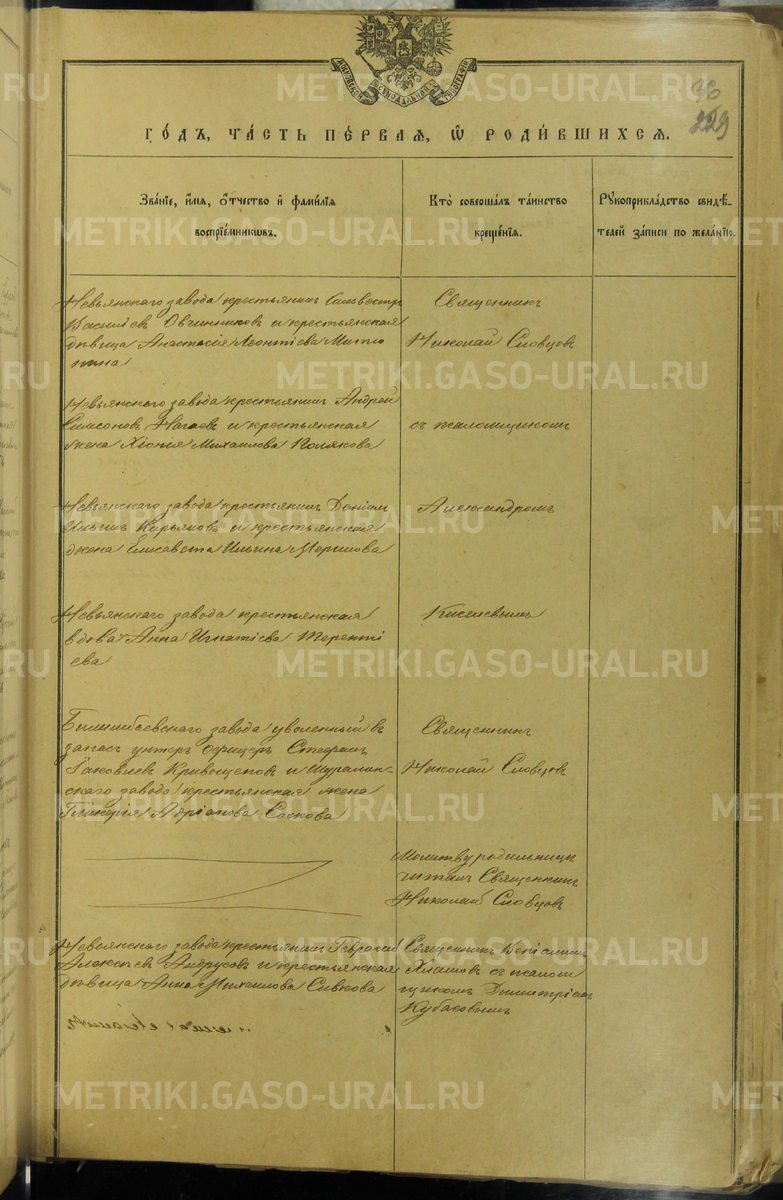 МОСКОВСКОЙ СѴНОДАЛЬНОЙ ТИПОГРАФІИ
36
229
ГО́ДЪ, ЧА́СТЬ ПЕ́РВАѦ, Ѡ РОДИ́ВШИХСѦ.
Зва́нїе, и́мѧ, о́тчество и фами́лїѧ
воспрїе́мниковъ.
Кто̀ соверша́лъ та́инство
креще́нїѧ.
Рꙋкоприкла́дство свидѣ́-
телей за́писи по жела́нїю.
Невьянскаго завода крестьянинъ Сильвестръ
Василіевъ Овчинниковъ и крестьянская
дѣвица Анастасія Леонтіева Митю
нина
Священникъ
Николай Словцовъ
Невьянскаго завода крестьянинъ Андрей
Симеоновъ Нагаевъ и крестьянская
жена Хіонія Михаилова Полякова
съ псаломщикомъ
Невьянскаго завода крестьянинъ
Ильинъ и крестьянская
жена Елисавета Ильина
Александромъ
Невьянскаго завода крестьянская
вдова Анна Игнатіева Теренті
ева
Киселевымъ
Билимбаевскаго завода уволенный въ
запасъ унтеръ офицеръ Стефанъ
Іаковлевъ Кривощековъ и Шуралин-
скаго завода крестьянская жена
Гликерія Адріанова Соскова
Священникъ
Николай Словцовъ
Молитву родильницы
читалъ Священникъ
Николай Словцовъ
Невьянскаго завода крестьянинъ Георгій
Алексѣевъ Андрусовъ и крестьянская
дѣвица Анна Михаилова Сивкова
Священникъ Веніаминъ
съ псалом
щикомъ Димитріемъ
Кубасовымъ
METRIKI.GASO-URAL.RU